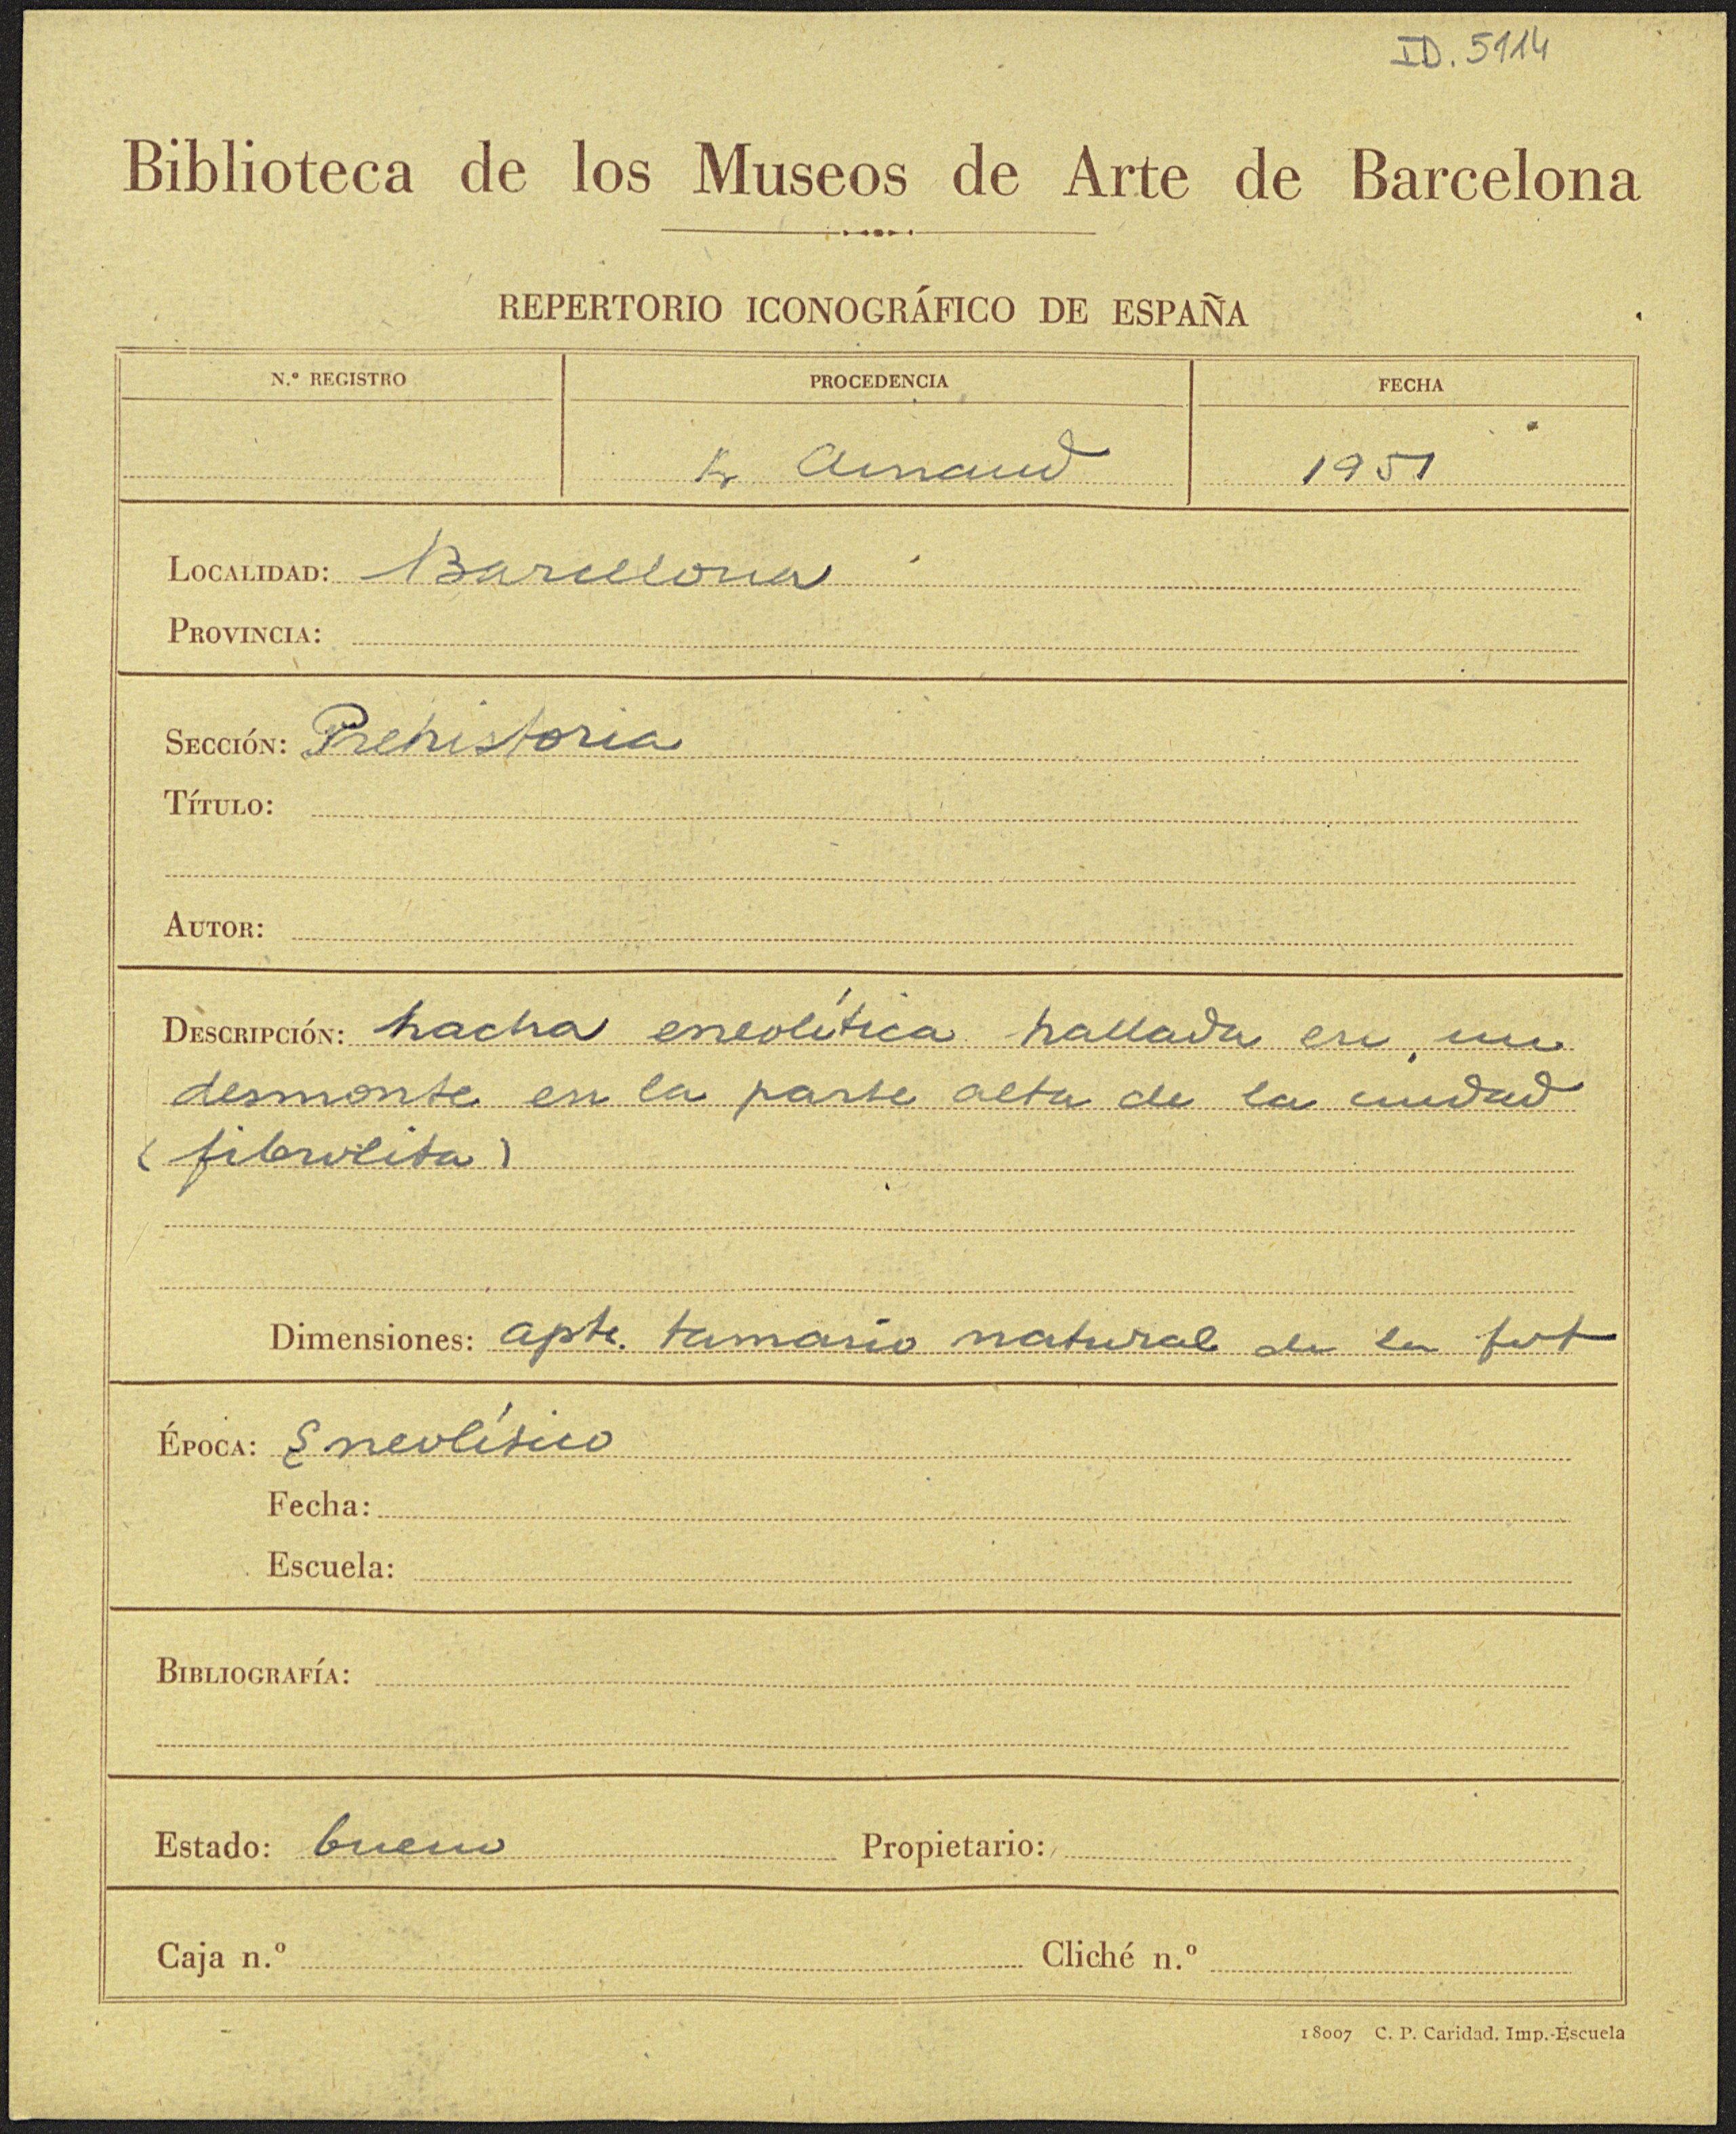 ID. 5114
Biblioteca de los Museos de Arte de Barcelona
REPERTORIO ICONOGRÁFICO DE ESPAÑA
N.º REGISTRO PROCEDENCIA FECHA
Sr Arnaud 1951
LOCALIDAD: Barcelona
PROVINCIA:
SECCIÓN: Prehistoria
TÍTULO:
AUTOR:
DESCRIPCIÓN: hacha eneolítica hallada en un
desmonte en la parte alta de la ciudad
(fibrolita)
Dimensiones: apte. tamaño natural de la fot
ÉPOCA: Eneolítico
Fecha:
Escuela:
BIBLIOGRAFÍA:
Estado: bueno Propietario:
Caja n.º Cliché n.º
18007 C. P. Caridad. Imp.-Escuela